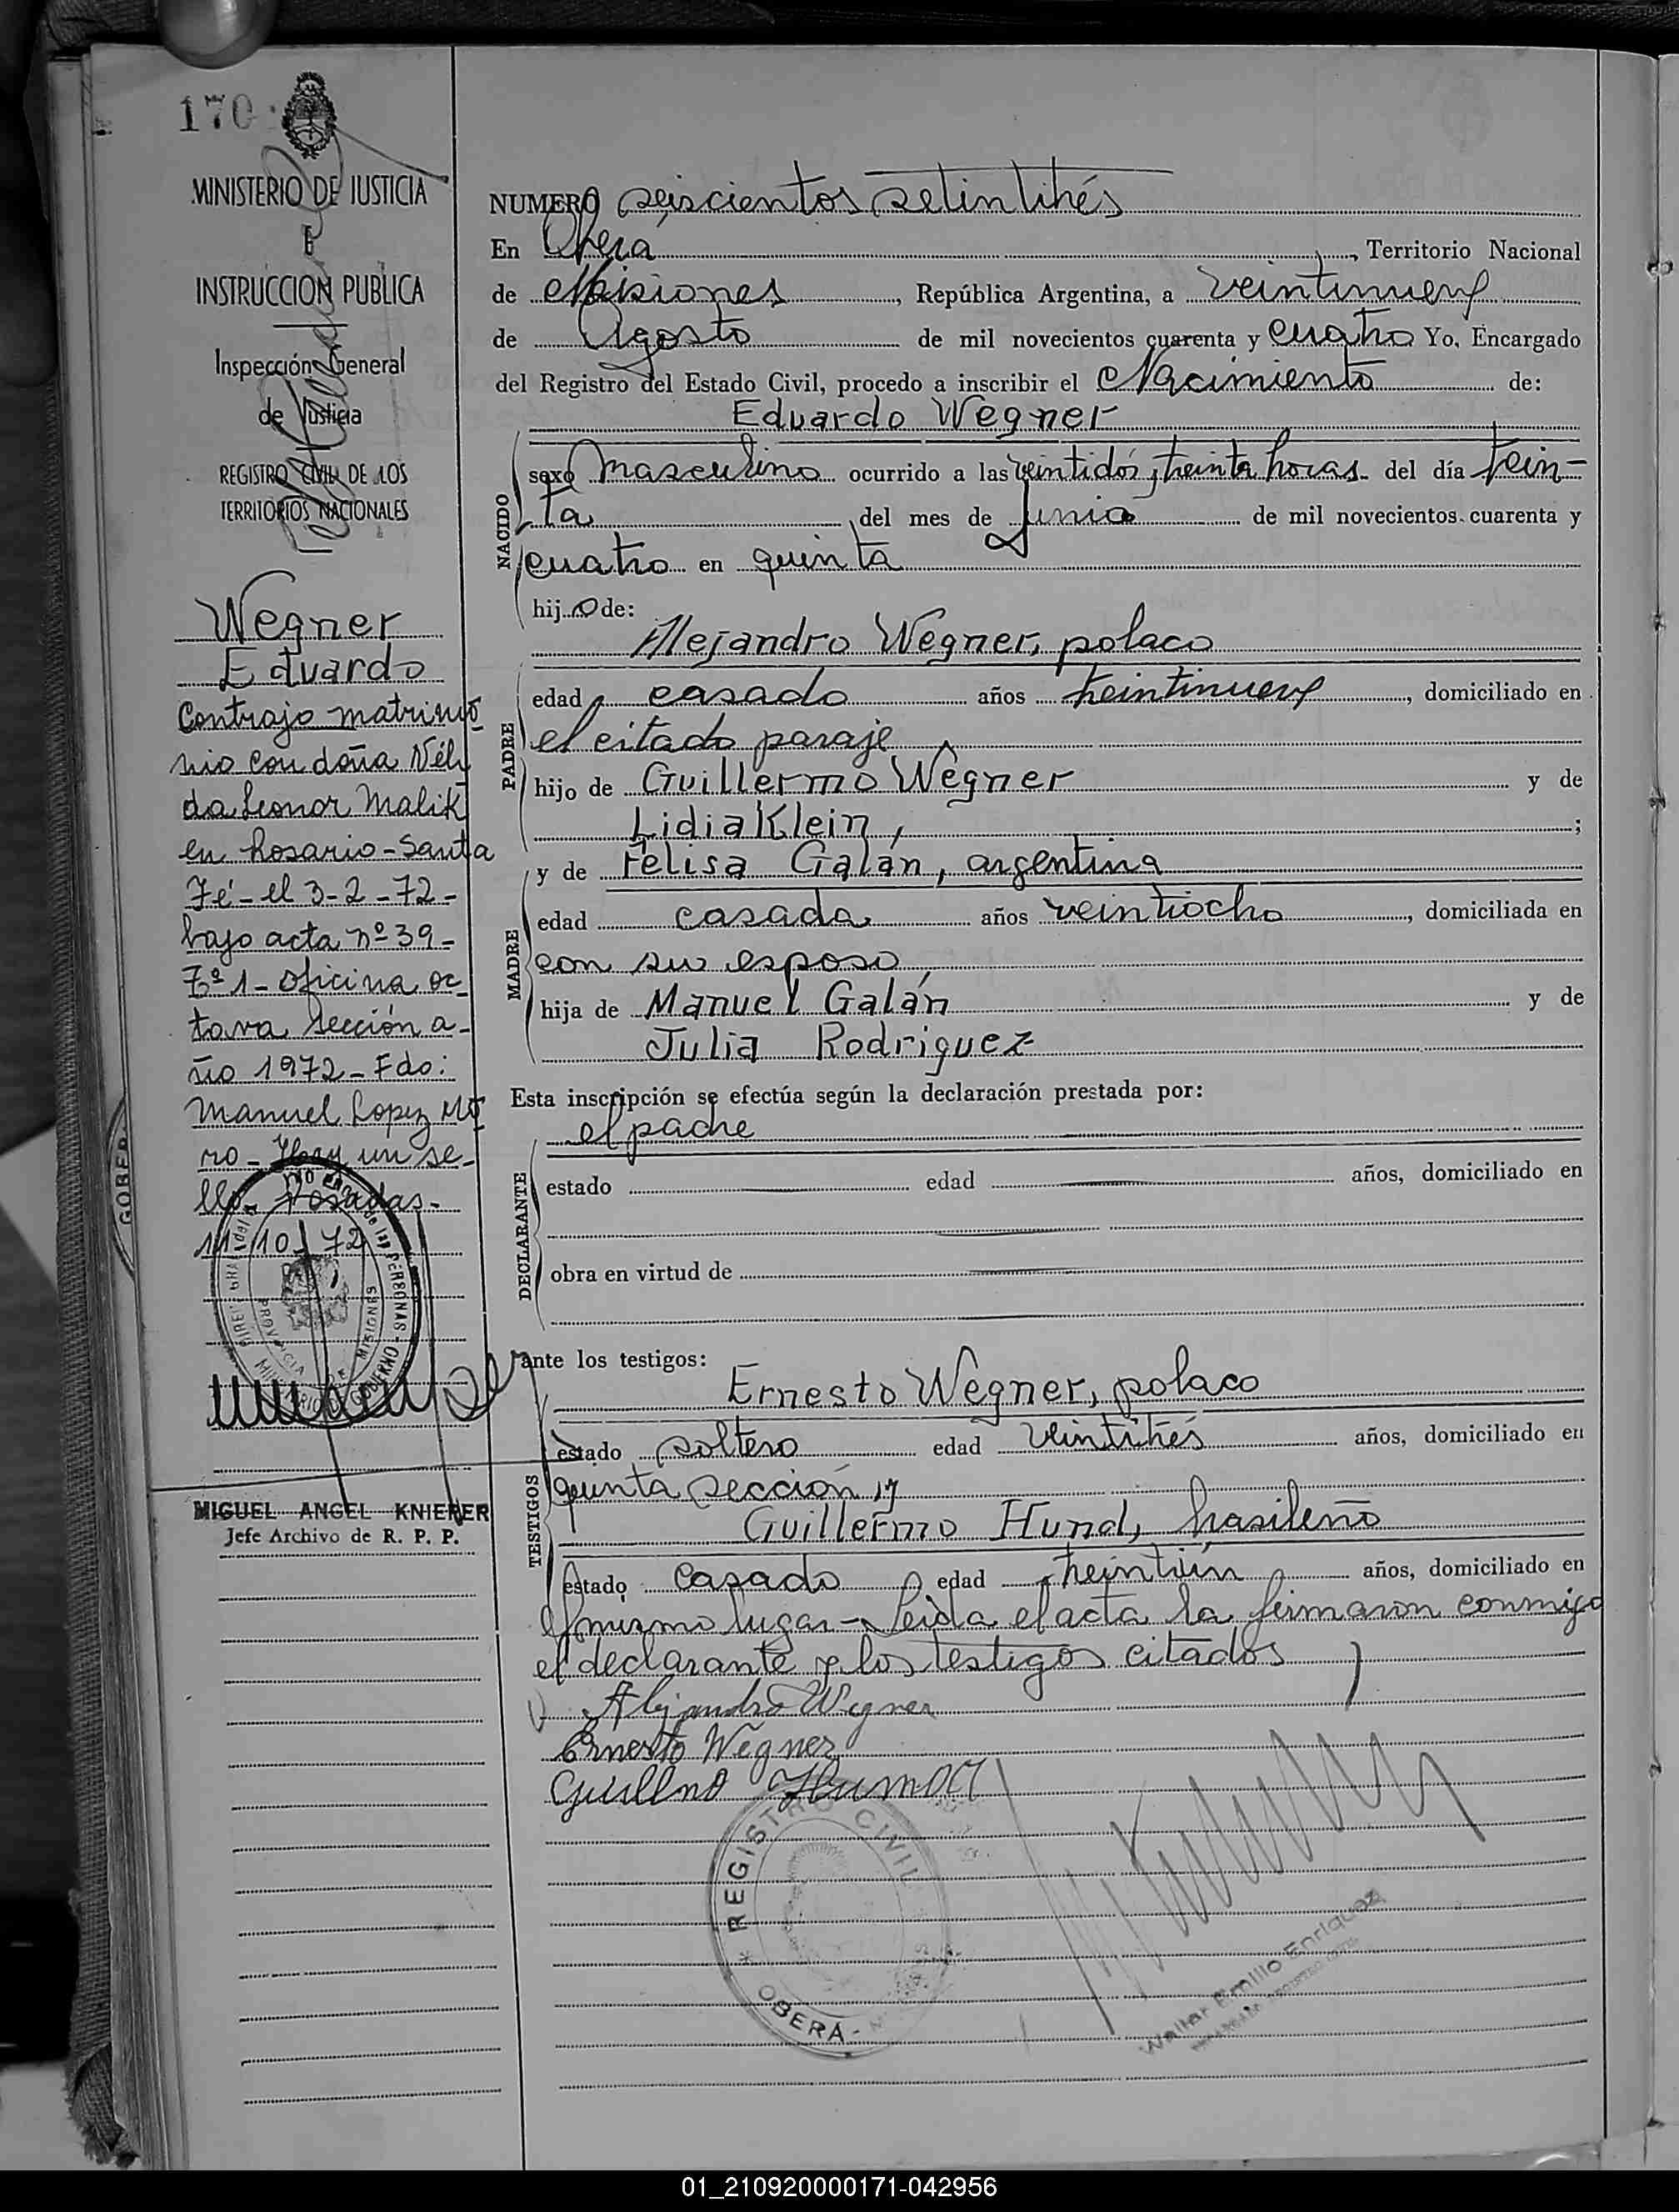 170
MINISTERIO DE JUSTICIA
E
INSTRUCCION PUBLICA
Inspección General
de Justicia
REGISTRO CIVIL DE LOS
TERRITORIOS NACIONALES
Wegner
Eduardo
Contrajo matrimo
nio con doña Néli
da Leonor Malik
en Rosario - Santa
Fé - el 3-2-72-
bajo acta nº 39-
Tº 1 - oficina oc-
tava sección a-
ño 1972 - Fdo:
Manuel Lopez Mo
ro - Hay un se-
llo - Posadas -
11/10/72
MIGUEL ANGEL KNIERER
Jefe Archivo de R. P. P.
NUMERO seiscientos setintitrés
En Oberá, Territorio Nacional
de Misiones, República Argentina, a veintinueve
de Agosto de mil novecientos cuarenta y cuatro Yo, Encargado
del Registro del Estado Civil, procedo a inscribir el Nacimiento de:
Eduardo Wegner
NACIDO
sexo masculino ocurrido a las veintidós y treinta horas - del día trein-
ta del mes de junio de mil novecientos cuarenta y
cuatro en quinta
hijo de:
Alejandro Wegner, polaco
PADRE
edad casado años treintinueve, domiciliado en
el citado paraje
hijo de Guillermo Wegner y de
Lidia Klein, ;
y de Felisa Galán, argentina
MADRE
edad casada años veintiocho, domiciliada en
con su esposo,
hija de Manuel Galán y de
Julia Rodriguez
Esta inscripción se efectúa según la declaración prestada por:
el padre
DECLARANTE
estado edad años, domiciliado en
obra en virtud de
ante los testigos:
Ernesto Wegner, polaco
TESTIGOS
estado soltero edad veintitrés años, domiciliado en
quinta sección 17
Guillermo Hund, brasileño
estado casado edad treintiún años, domiciliado en
el mismo lugar - Leida el acta la firmaron conmigo
el declarante y los testigos citados
Alejandro Wegner
Ernesto Wegner
REGISTRO CIVIL
OBERA -
Walter Emilio Enriquez
01_210920000171-042956